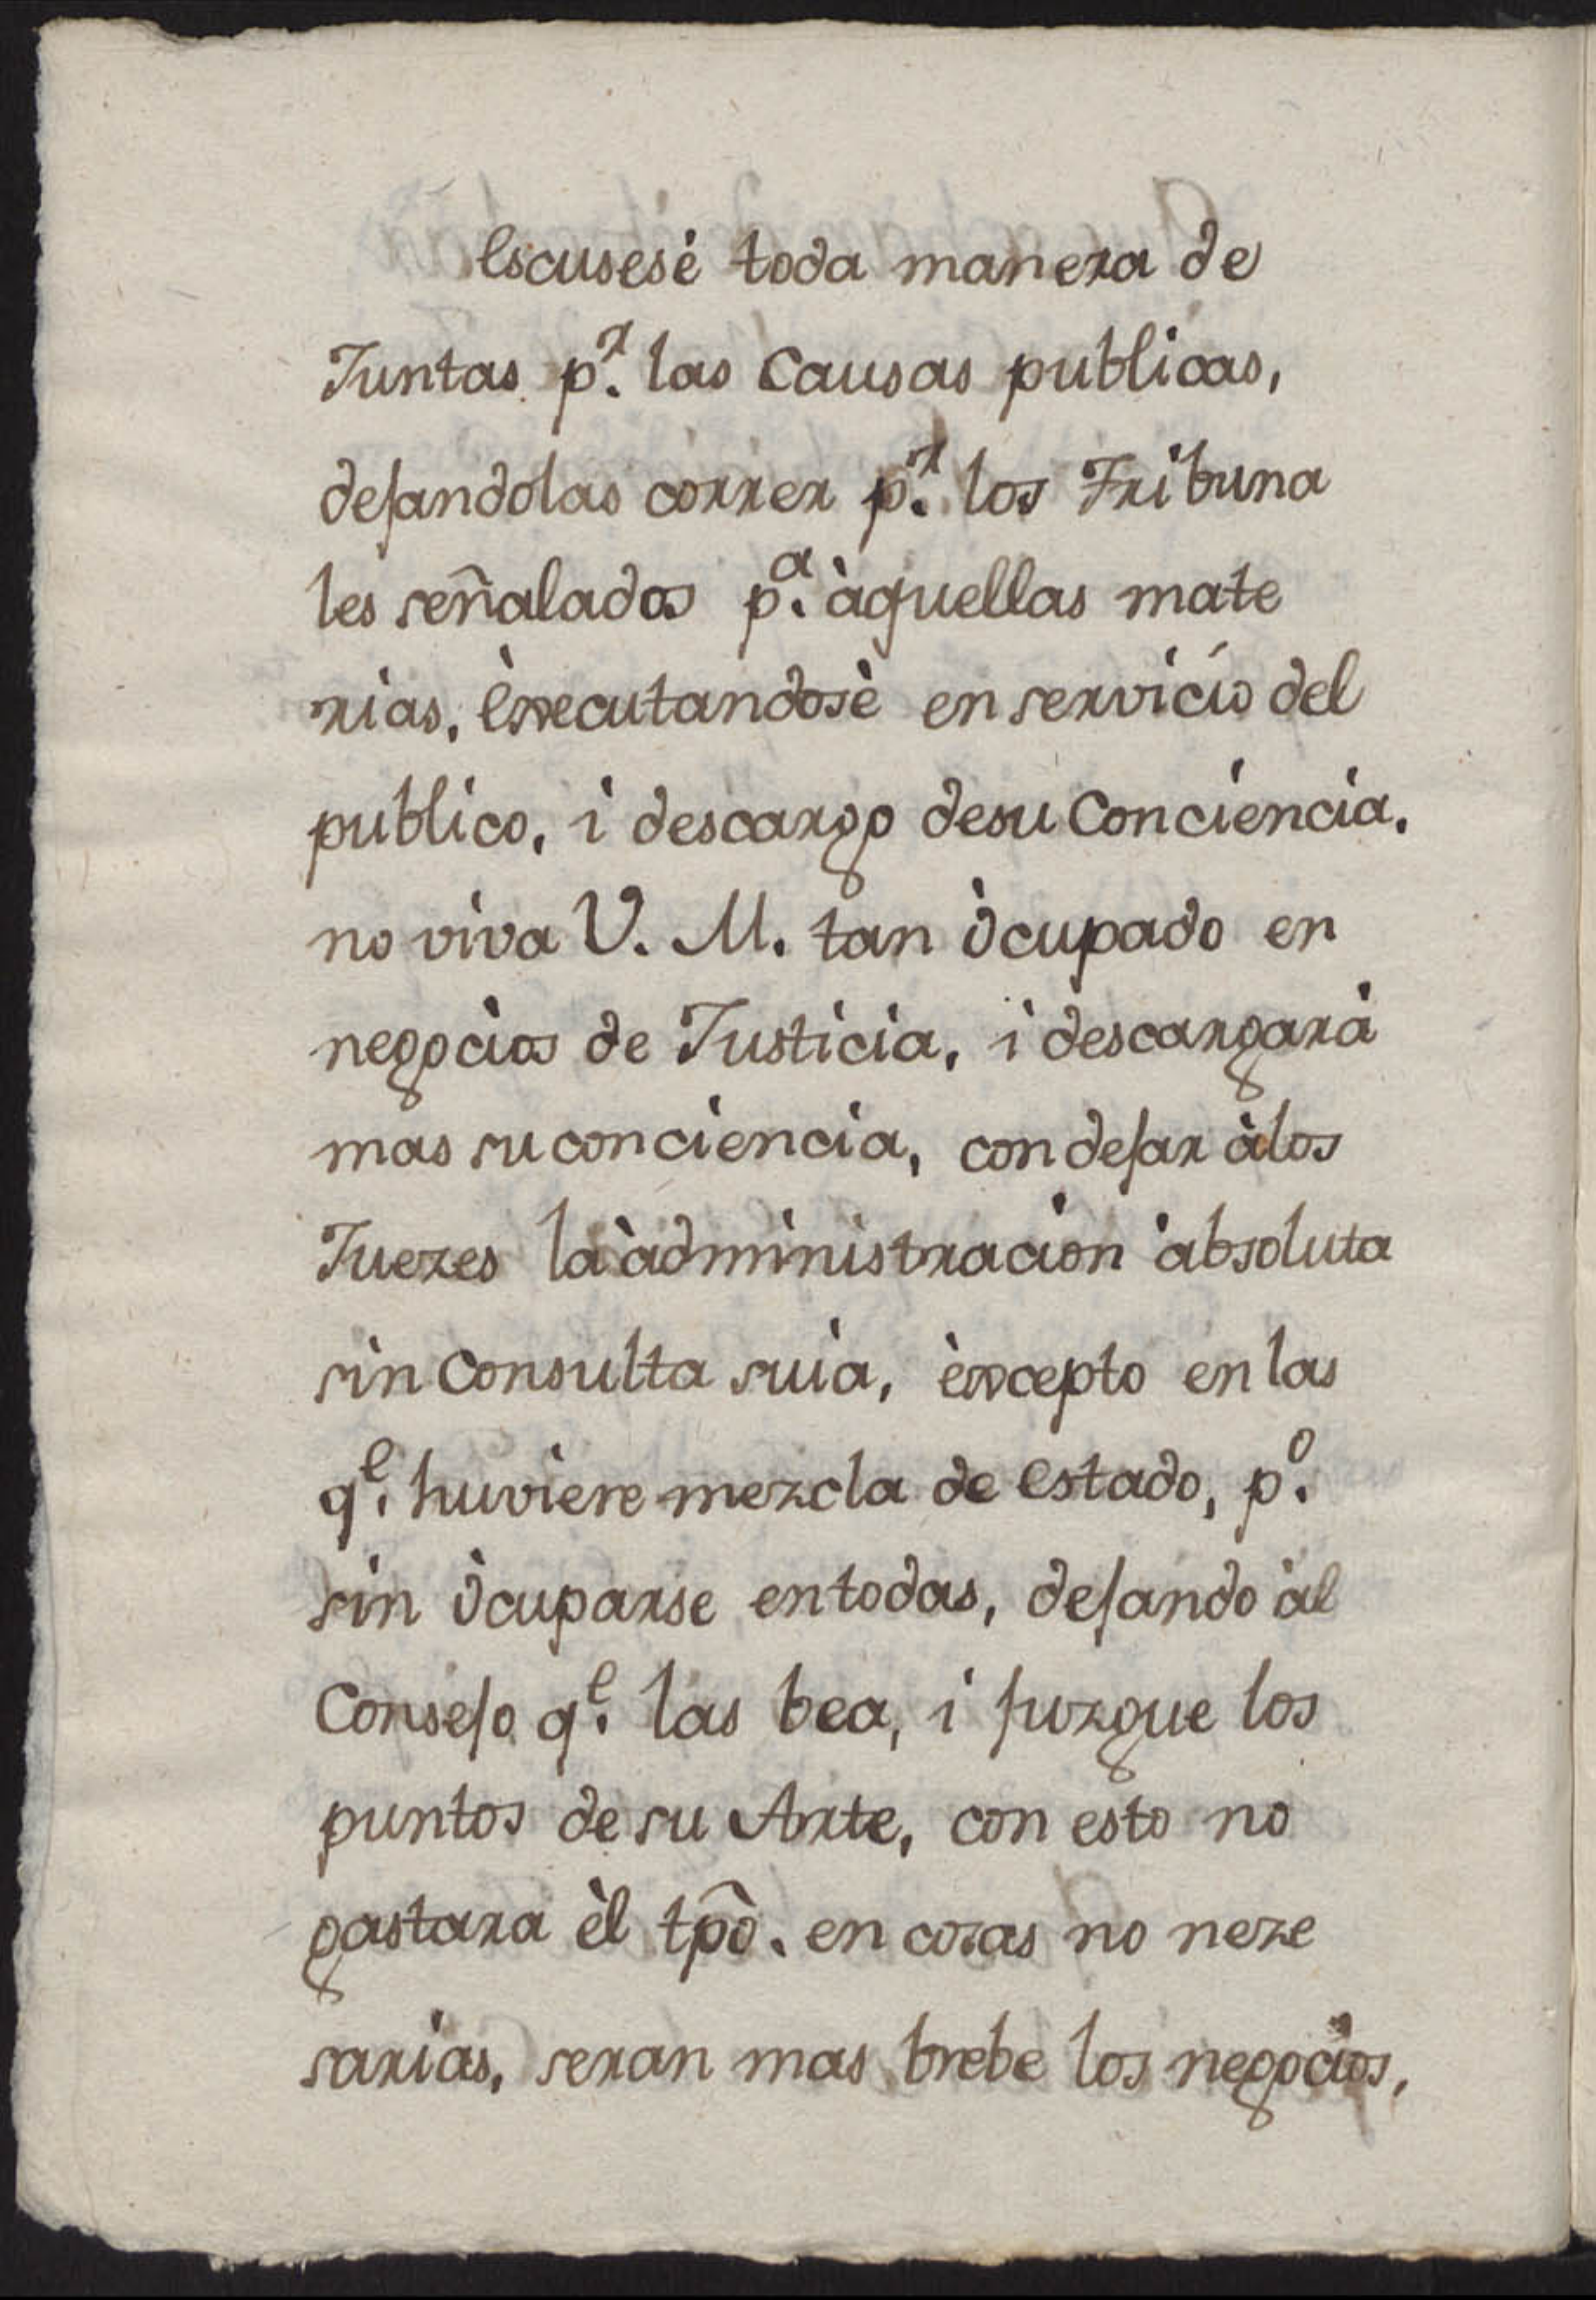 Escusesè toda manera de
Juntas p.r las Causas publicas,
dejandolas correr p.r los Tribuna
les señalados p.a àquellas mate
rias, Executandosè en servicío del
publico, i descargo desu Conciencia.
no viva V. M. tan òcupado en
negocios de Justicia, i descargarà
mas su conciencia, con dejar àlos
Juezes la àdministracion absoluta
sin Consulta suia, èxcepto en las
q.e huviere mezcla de Estado, p.o
sin òcuparse entodas, dejando àl
Consejo q.e las bea, i juzgue los
puntos de su Arte, con esto no
gastara èl tp̂o. en cosas no neze
sarias, seran mas brebe los negocios,